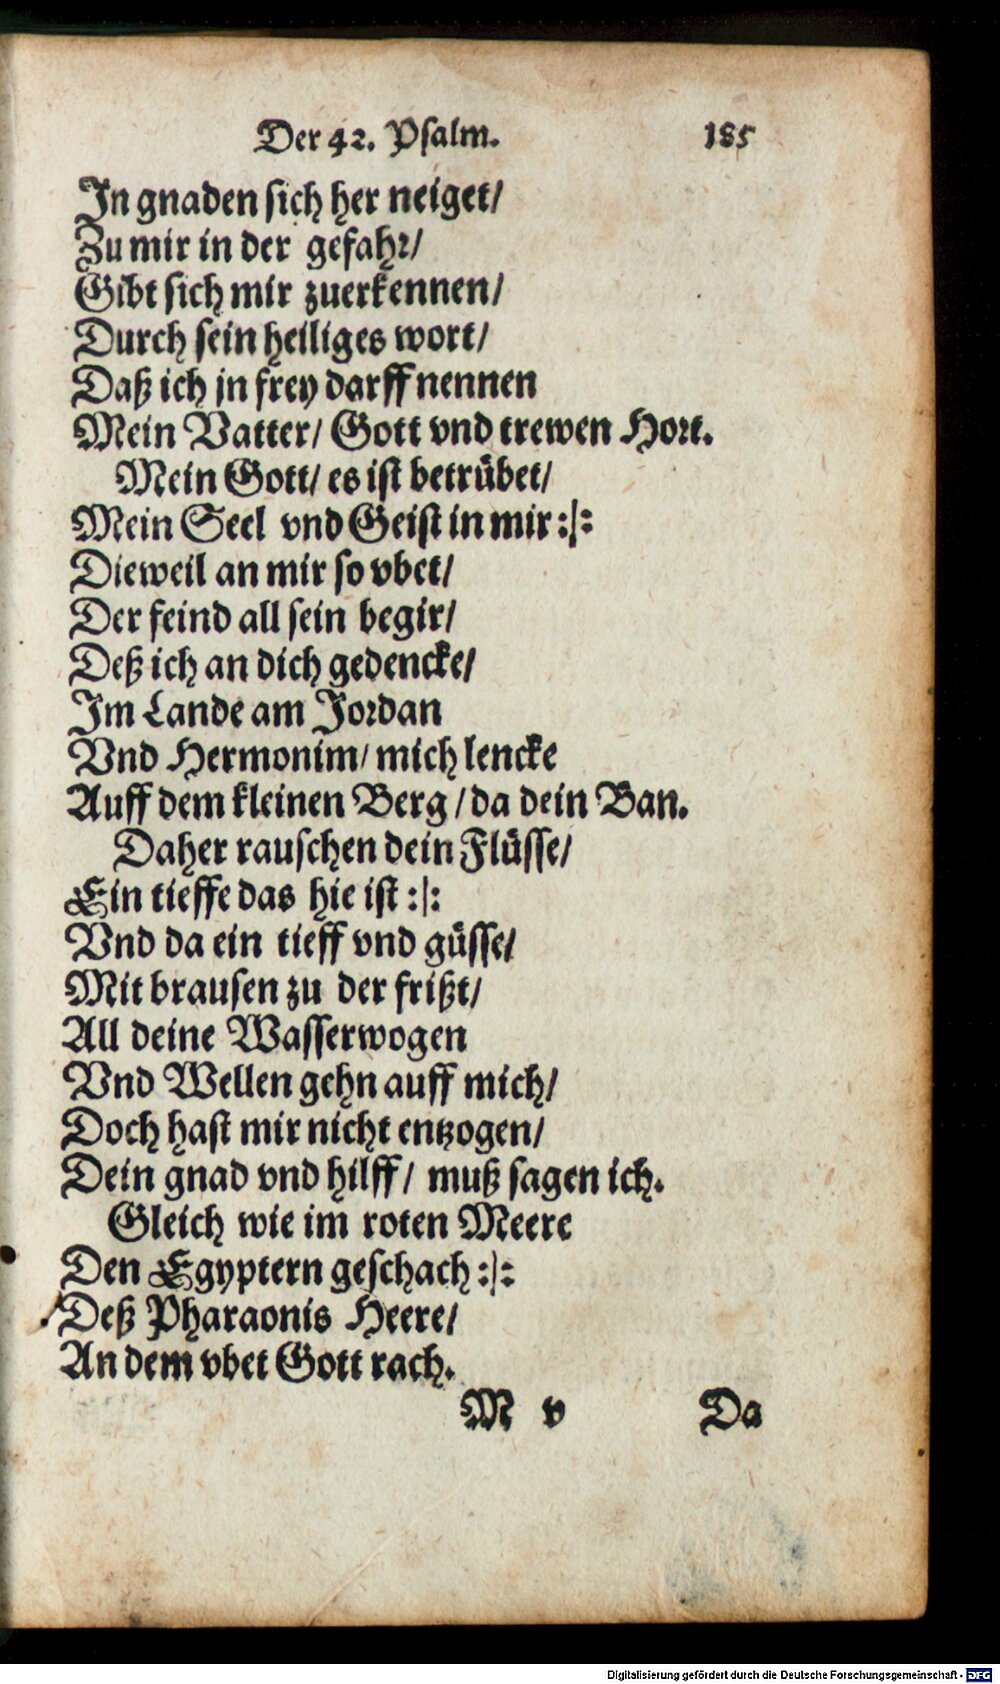 Der 42. Psalm. 185
In gnaden sich her neiget/
Zu mir in der gefahr/
Gibt sich mir zuerkennen/
Durch sein heiliges wort/
Daß ich jn frey darff nennen
Mein Vatter/ Gott vnd trewen Hort.
Mein Gott/ es ist betrübet/
Mein Seel vnd Geist in mir :/:
Dieweil an mir so vbet/
Der feind all sein begir/
Deß ich an dich gedencke/
Im Lande am Jordan
Vnd Hermonim/ mich lencke
Auff dem kleinen Berg / da dein Ban.
Daher rauschen dein Flüsse/
Ein tieffe das hie ist :/:
Vnd da ein tieff vnd güsse/
Mit brausen zu der frißt/
All deine Wasserwogen
Vnd Wellen gehn auff mich/
Doch hast mir nicht entzogen/
Dein gnad vnd hilff/ muß sagen ich.
Gleich wie im roten Meere
Den Egyptern geschach :/:
Deß Pharaonis Heere/
An dem vbet Gott rach.
M v Da
Digitalisierung gefördert durch die Deutsche Forschungsgemeinschaft - DFG